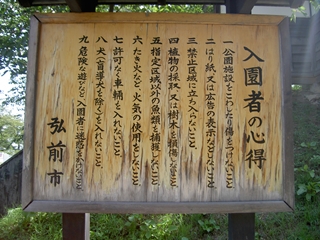 入園者の心得
一 公園施設をこわしたり傷をつけないこと
二 はり紙又は広告の表示などしないこと
三 禁止区域に立ち入らないこと。
四 植物の採取、又は樹木を損傷しないこと
五 指定区域以外の魚類を捕獲しないこと。
六 たき火など、火気の使用をしないこと。
七 許可なく車輛を入れないこと
八 犬(盲導犬を除く)を入れないこと。
九 危険な遊びなど入園者に迷惑をかけないこと
弘前市